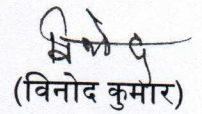 विनोद
(विनोद कुमार)